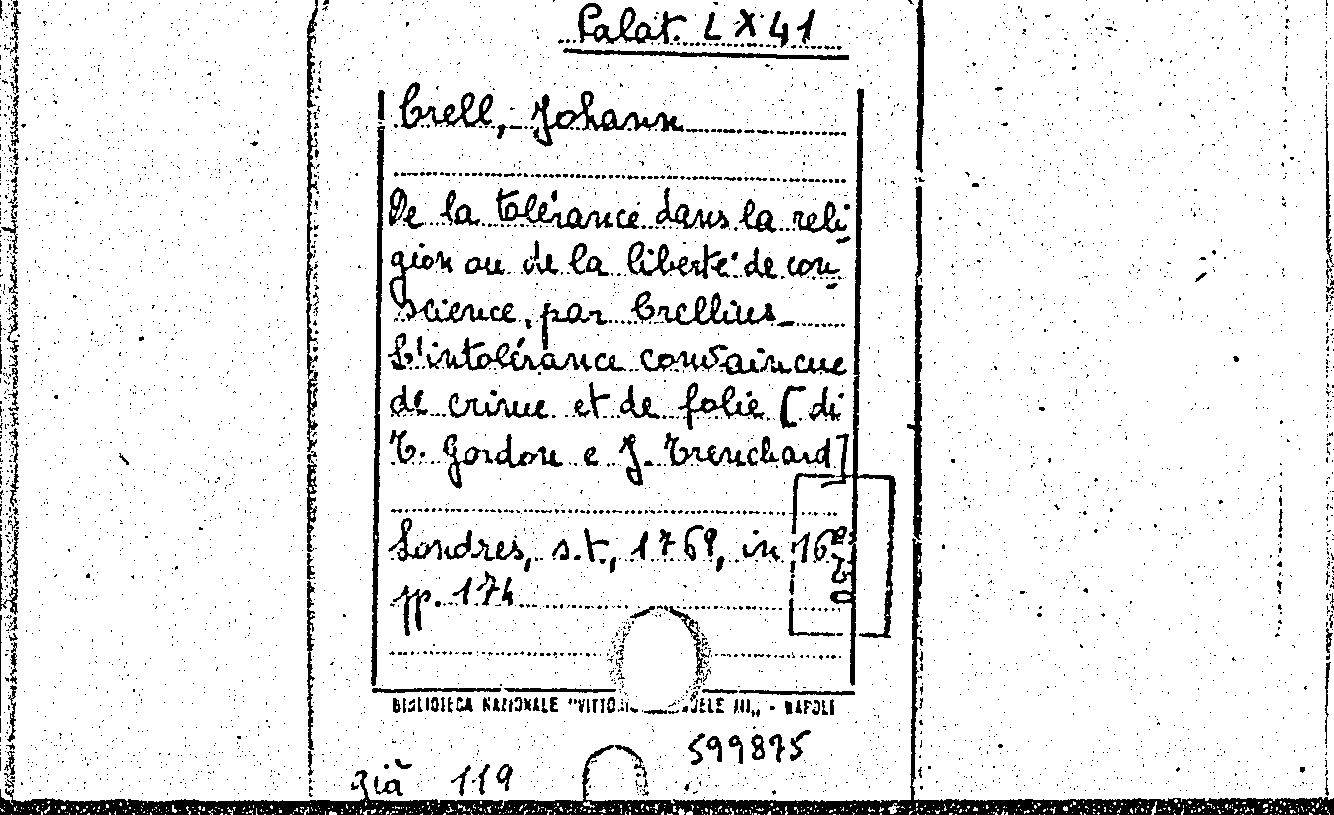 Palat. LX41
Crell, Johann
De la tolérance dans la reli-
gion ou de la liberté de con-
science, par Crellius_
L'intolérance convaincue
de crime et de folie [di
T. Gordon e J. Trenchard]
Londres, s.t., 1769, in 16°
pp. 174
BIBLIOTECA NAZIONALE "VITTO UELE III,, - NAPOLI
599875
già 119